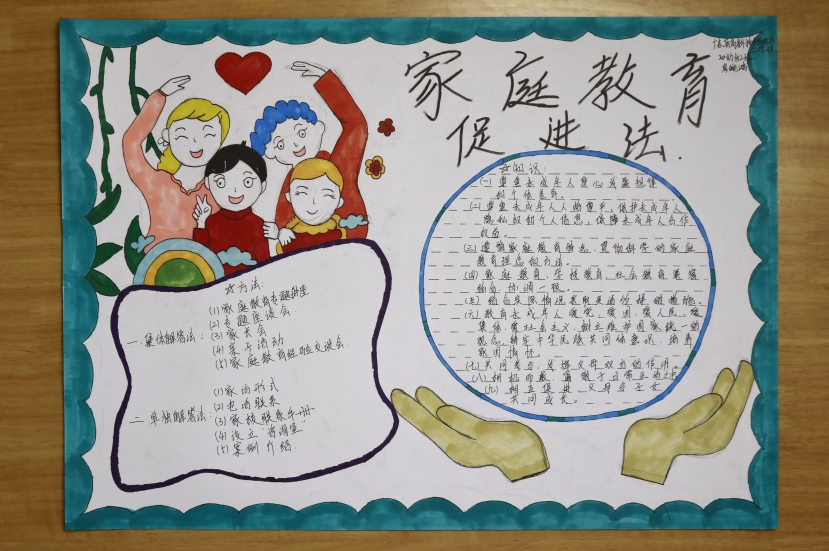 家庭教育
促进法.
☆知识:
(一)尊重未成年人身心发展规律
和个体差异。
(二)尊重未成年人人格尊严,保护未成年人
隐私权和个人信息,保障未成年人合法
权益。
(三)遵循家庭教育特点,贯彻科学的家庭
教育理念和方法。
(四)家庭教育、学校教育、社会教育紧密
结合、协调一致。
(五)结合实际情况采取灵活多样的措施。
(六)教育未成年人爱党、爱国、爱人民、爱
集体、爱社会主义,树立维护国家统一的
观念,铸牢中华民族共同体意识,培养
家国情怀。
(七)共同参与,发挥父母双方的作用。
(八)相机而教,寓教于日常生活之中。
(九)相互促进,父母与子女
共同成长。
☆方法:
一.集体解答法:
(1)家庭教育专题讲座
(2)专题座谈会
(3)家长会
(4)亲子活动
(5)家庭教育经验交谈会
二.单独解答法:
(1)家访形式
(2)电话联系
(3)家校联系手册
(4)设立“咨询室”
(5)案例介绍